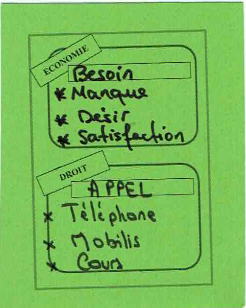 ECONOMIE
Besoin
* Manque
* Désir
* Satisfaction
DROIT
APPEL
* Téléphone
* Mobilis
* Cours